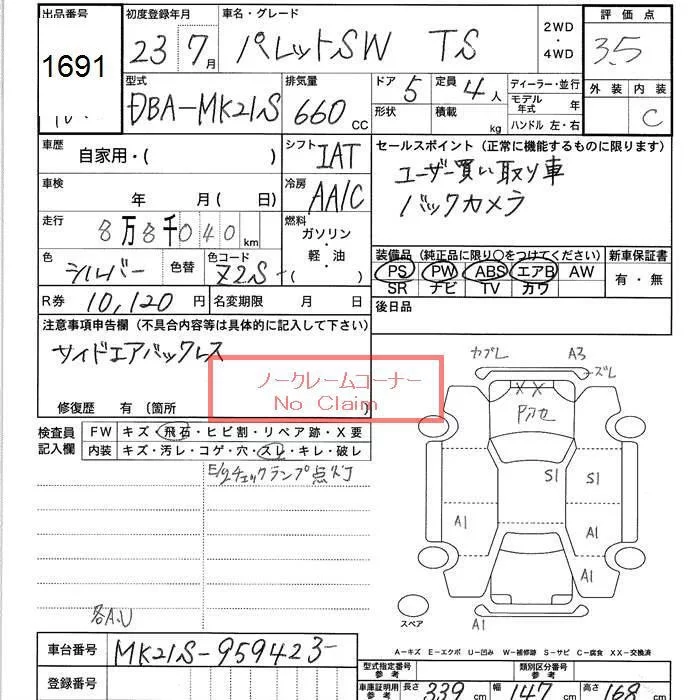 出品番号 初度登録年月 車名・グレード 2WD・4WD 評価点
1691 23 7月 パレットSW TS 3.5
型式 排気量 ドア 5 定員 4人 ディーラー・並行 外装 内装
DBA-MK21S 660 CC 形状 積載 kg モデル年式 年 C
ハンドル 左・右
車歴 自家用・( ) シフト IAT セールスポイント(正常に機能するものに限ります)
ユーザー買い取り車
車検 年 月(日) 冷房 AA/C バックカメラ
走行 8万8千040km 燃料 ガソリン・軽油・( )
装備品(純正品に限り○をつけてください) 新車保証書
色 シルバー 色替 色コード Z2S PS PW ABS エアB AW 有・無
SR ナビ TV カワ
R券 10,120円 名変期限 月 日 後日品
注意事項申告欄(不具合内容等は具体的に記入して下さい)
サイドエアバックレス
ノークレームコーナー
No Claim
修復歴 有(箇所
検査員記入欄 FW キズ・飛石・ヒビ割・リペア跡・X要
内装 キズ・汚レ・コゲ・穴・スレ・キレ・破レ
E/gチェックランプ点灯
各A.U
カブレ A3
ズレ
XX
Pアセ
S1 S1
A1 A1
A1
A1
スペア
A-キズ E-エクボ U-凹み W-補修跡 S-サビ C-腐食 XX-交換済
車台番号 MK21S-959423-
登録番号
型式指定番号 参考 類別区分番号 参考
車庫証明用 参考 長さ 339cm 幅 147cm 高さ 168cm